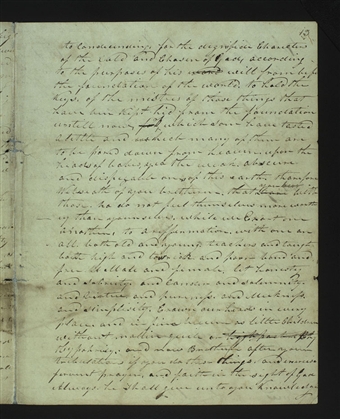 13
to condescending for the dignifide Character
of the calld and Chosen of God, according
to the purposes of his will from before
the foundation of the world, to hold the
keys of the mistries of those things that
have been kept hid from the foundation
untill now, which some have tasted
a little and which many of them are
to be pourd down from heaven upon the
heads of babes, yea the weak, obscure
and dispizable ones of this earth, therefore
beseech of you brethren, that bear with
those, who do not feel themselves more worthy
than yourselves, while we Exort one
another, to a reffermation, with one an
all both old and young teachers and taught
both high and low rich and poor bond and
free Male and female, let honesty
and sobriety and candor and solemnity
and virtue and pureness and Meekness
and simplisity, Crown our heads in every
place and in fine become as little Children
without mallice guile or
Hypokricy, and now Brethren after your
tribulations if you do these things, and exercise
fervent prayer, and faith in the sight of God
Allways he shall give unto you Knowledge